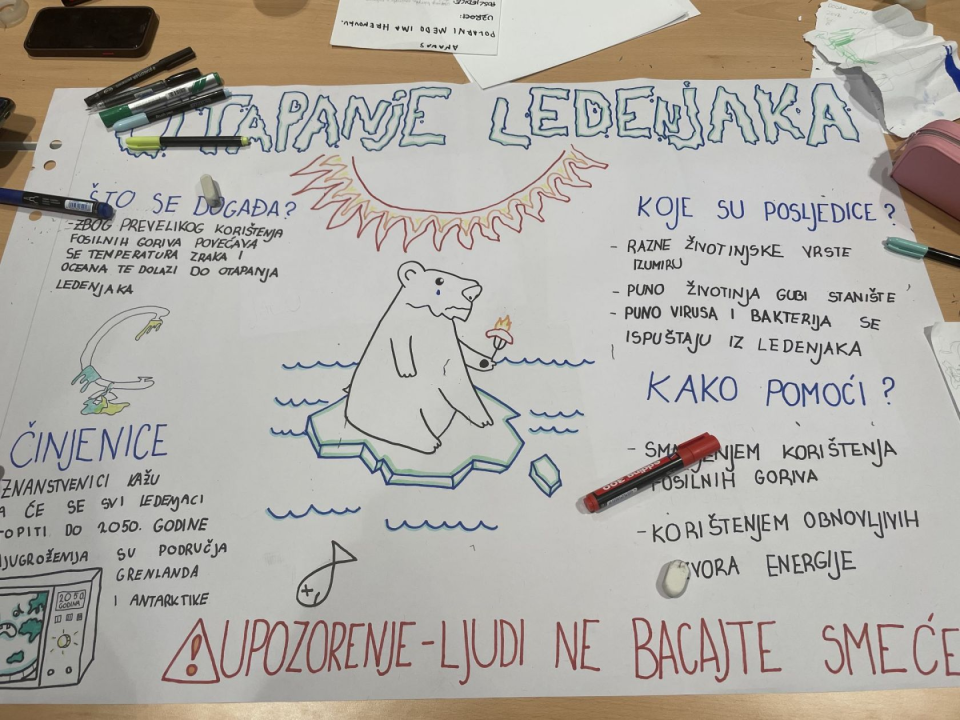 POLARNI MEDO IMA HRENOVKU.
UZROCI:
POSLJEDICE:
OTAPANJE LEDENJAKA
ŠTO SE DOGAĐA?
-ZBOG PREVELIKOG KORIŠTENJA
FOSILNIH GORIVA POVEĆAVA
SE TEMPERATURA ZRAKA I
OCEANA TE DOLAZI DO OTAPANJA
LEDENJAKA
ČINJENICE
ZNANSTVENICI KAŽU
A ĆE SE SVI LEDENJACI
OTOPITI DO 2050. GODINE
JUGROŽENIJA SU PODRUČJA
GRENLANDA
I ANTARKTIKE
2050
GODINA
KOJE SU POSLJEDICE?
- RAZNE ŽIVOTINJSKE VRSTE
IZUMIRU
- PUNO ŽIVOTINJA GUBI STANIŠTE
- PUNO VIRUSA I BAKTERIJA SE
ISPUŠTAJU IZ LEDENJAKA
KAKO POMOĆI?
- SMANJENJEM KORIŠTENJA
FOSILNIH GORIVA
- KORIŠTENJEM OBNOVLJIVIH
IZVORA ENERGIJE
edding 300
! UPOZORENJE-LJUDI NE BACAJTE SMEĆE